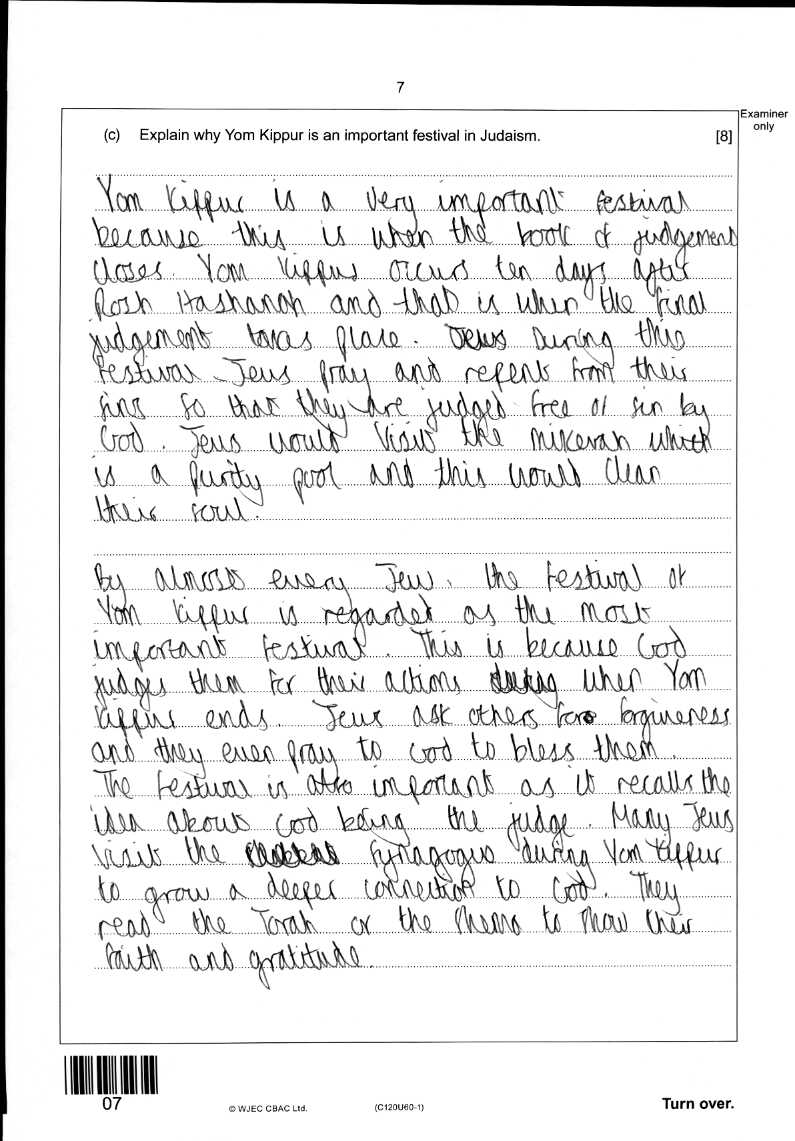 7
Examiner
only
(c) Explain why Yom Kippur is an important festival in Judaism. [8]
Yom Kippur is a very important festival
because this is when the book of judgement
closes. Yom Kippur occurs ten days after
Rosh Hashanah and that is when the final
judgement takes place. Jews During this
festival Jews pray and repent from their
sins so that they are judged free of sin by
God. Jews would visit the mikevah which
is a purity pool and this would clean
their soul.
By almost every Jew, the festival of
Yom Kippur is regarded as the most
important festival. This is because God
judges them for their actions during when Yom
Kippur ends. Jews ask others for forgiveness
and they even pray to God to bless them.
The festival is also important as it recalls the
idea about God being the judge. Many Jews
visit the synagogue during Yom Kippur
to grow a deeper connection to God. They
read the Torah or the Shema to show their
faith and gratitude.
07
© WJEC CBAC Ltd. (C120U60-1) Turn over.